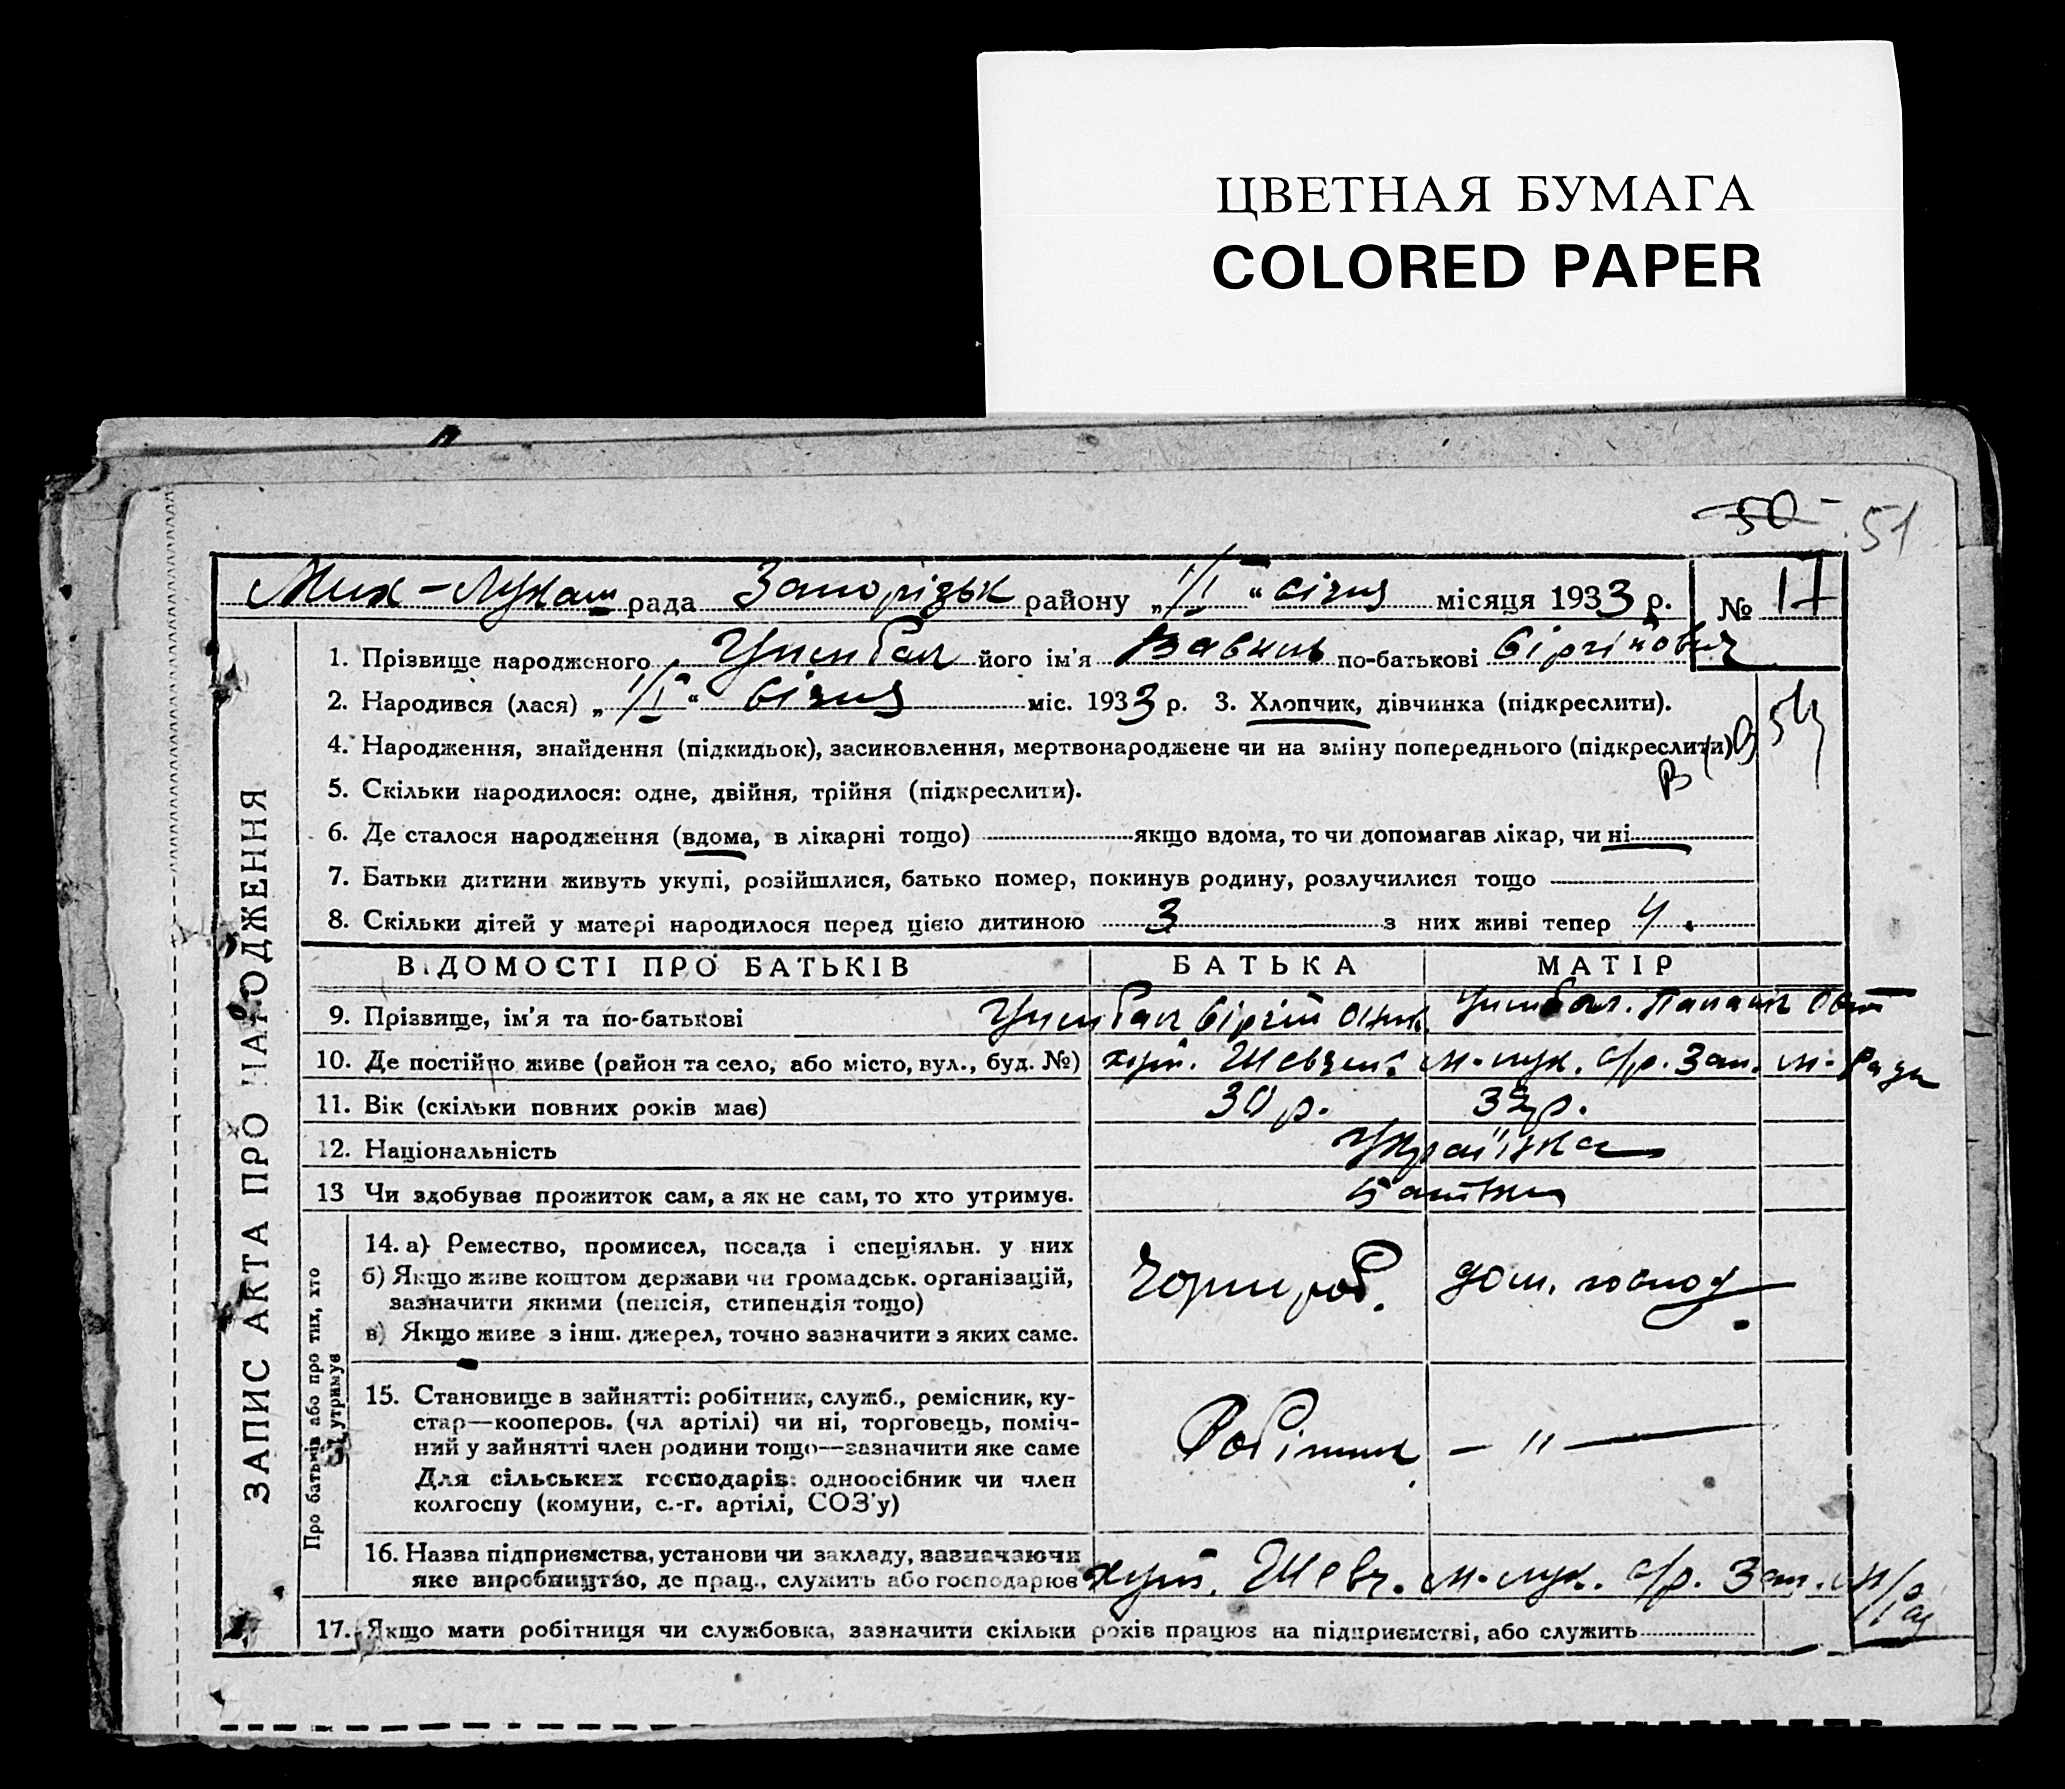 ЦВЕТНАЯ БУМАГА
COLORED PAPER
50 51
Мих-Лукаш рада Запорізьк району „1/I“ січня місяця 1933 р. № 17
1. Прізвище народженого Цимбал його ім'я по-батькові
2. Народився (лася) „1/I“ січня міс. 1933 р. 3. Хлопчик, дівчинка (підкреслити).
4. Народження, знайдення (підкидьок), засиновлення, мертвонароджене чи на зміну попереднього (підкреслити)
5. Скільки народилося: одне, двійня, трійня (підкреслити).
6. Де сталося народження (вдома, в лікарні тощо) якщо вдома, то чи допомагав лікар, чи ні
7. Батьки дитини живуть укупі, розійшлися, батько помер, покинув родину, розлучилися тощо
8. Скільки дітей у матері народилося перед цією дитиною 3 з них живі тепер 4
ЗАПИС АКТА ПРО НАРОДЖЕННЯ
ВІДОМОСТІ ПРО БАТЬКІВ БАТЬКА МАТІР
9. Прізвище, ім'я та по-батькові Цимбал Цимбал.
10. Де постійно живе (район та село, або місто, вул., буд. №) хут. Шевченк м-лук. с/р. Зап. м-Ради
11. Вік (скільки повних років має) 30 р. 32 р.
12. Національність Українка
13 Чи здобуває прожиток сам, а як не сам, то хто утримує. батьки
Про батьків або про тих, хто утримує
14. а) Ремество, промисел, посада і спеціяльн. у них
б) Якщо живе коштом держави чи громадськ. організацій,
зазначити якими (пенсія, стипендія тощо)
в) Якщо живе з інш. джерел, точно зазначити з яких саме.
Чорнороб. дом. господ
15. Становище в зайнятті: робітник, служб., ремісник, ку-
стар—кооперов. (чл артілі) чи ні, торговець, поміч-
ний у зайнятті член родини тощо—зазначити яке саме
Для сільських господарів: одноосібник чи член
колгоспу (комуни, с.-г. артілі, СОЗ'у)
Робітник — „ —
16. Назва підприємства, установи чи закладу, зазначаючи
яке виробництво, де прац., служить або господарює хут. Шевч. м-лук. с/р. Зап. м/Рад
17. Якщо мати робітниця чи службовка, зазначити скільки років працює на підприємстві, або служить